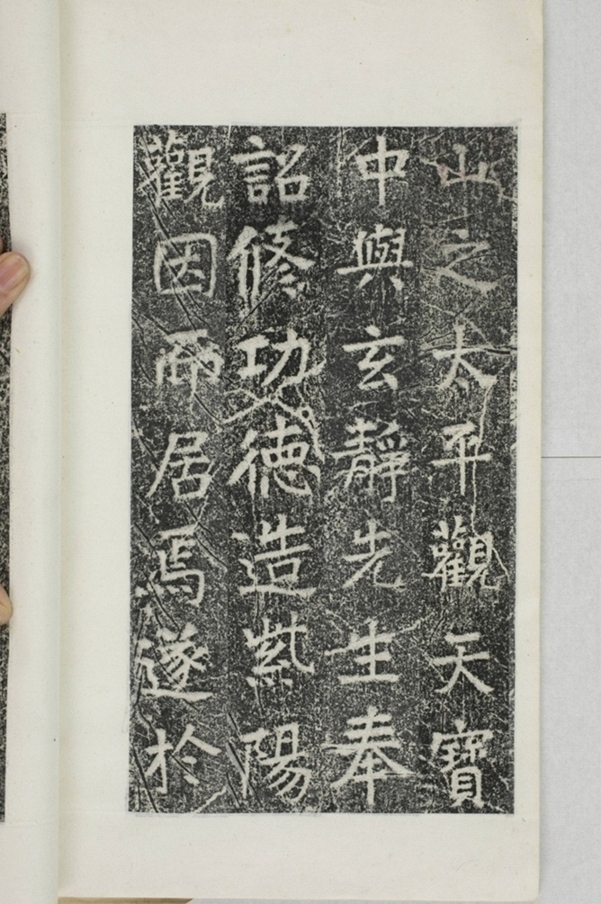 山之太平觀天寶
中與玄靜先生奉
詔修功德造紫陽
觀因而居焉遂於